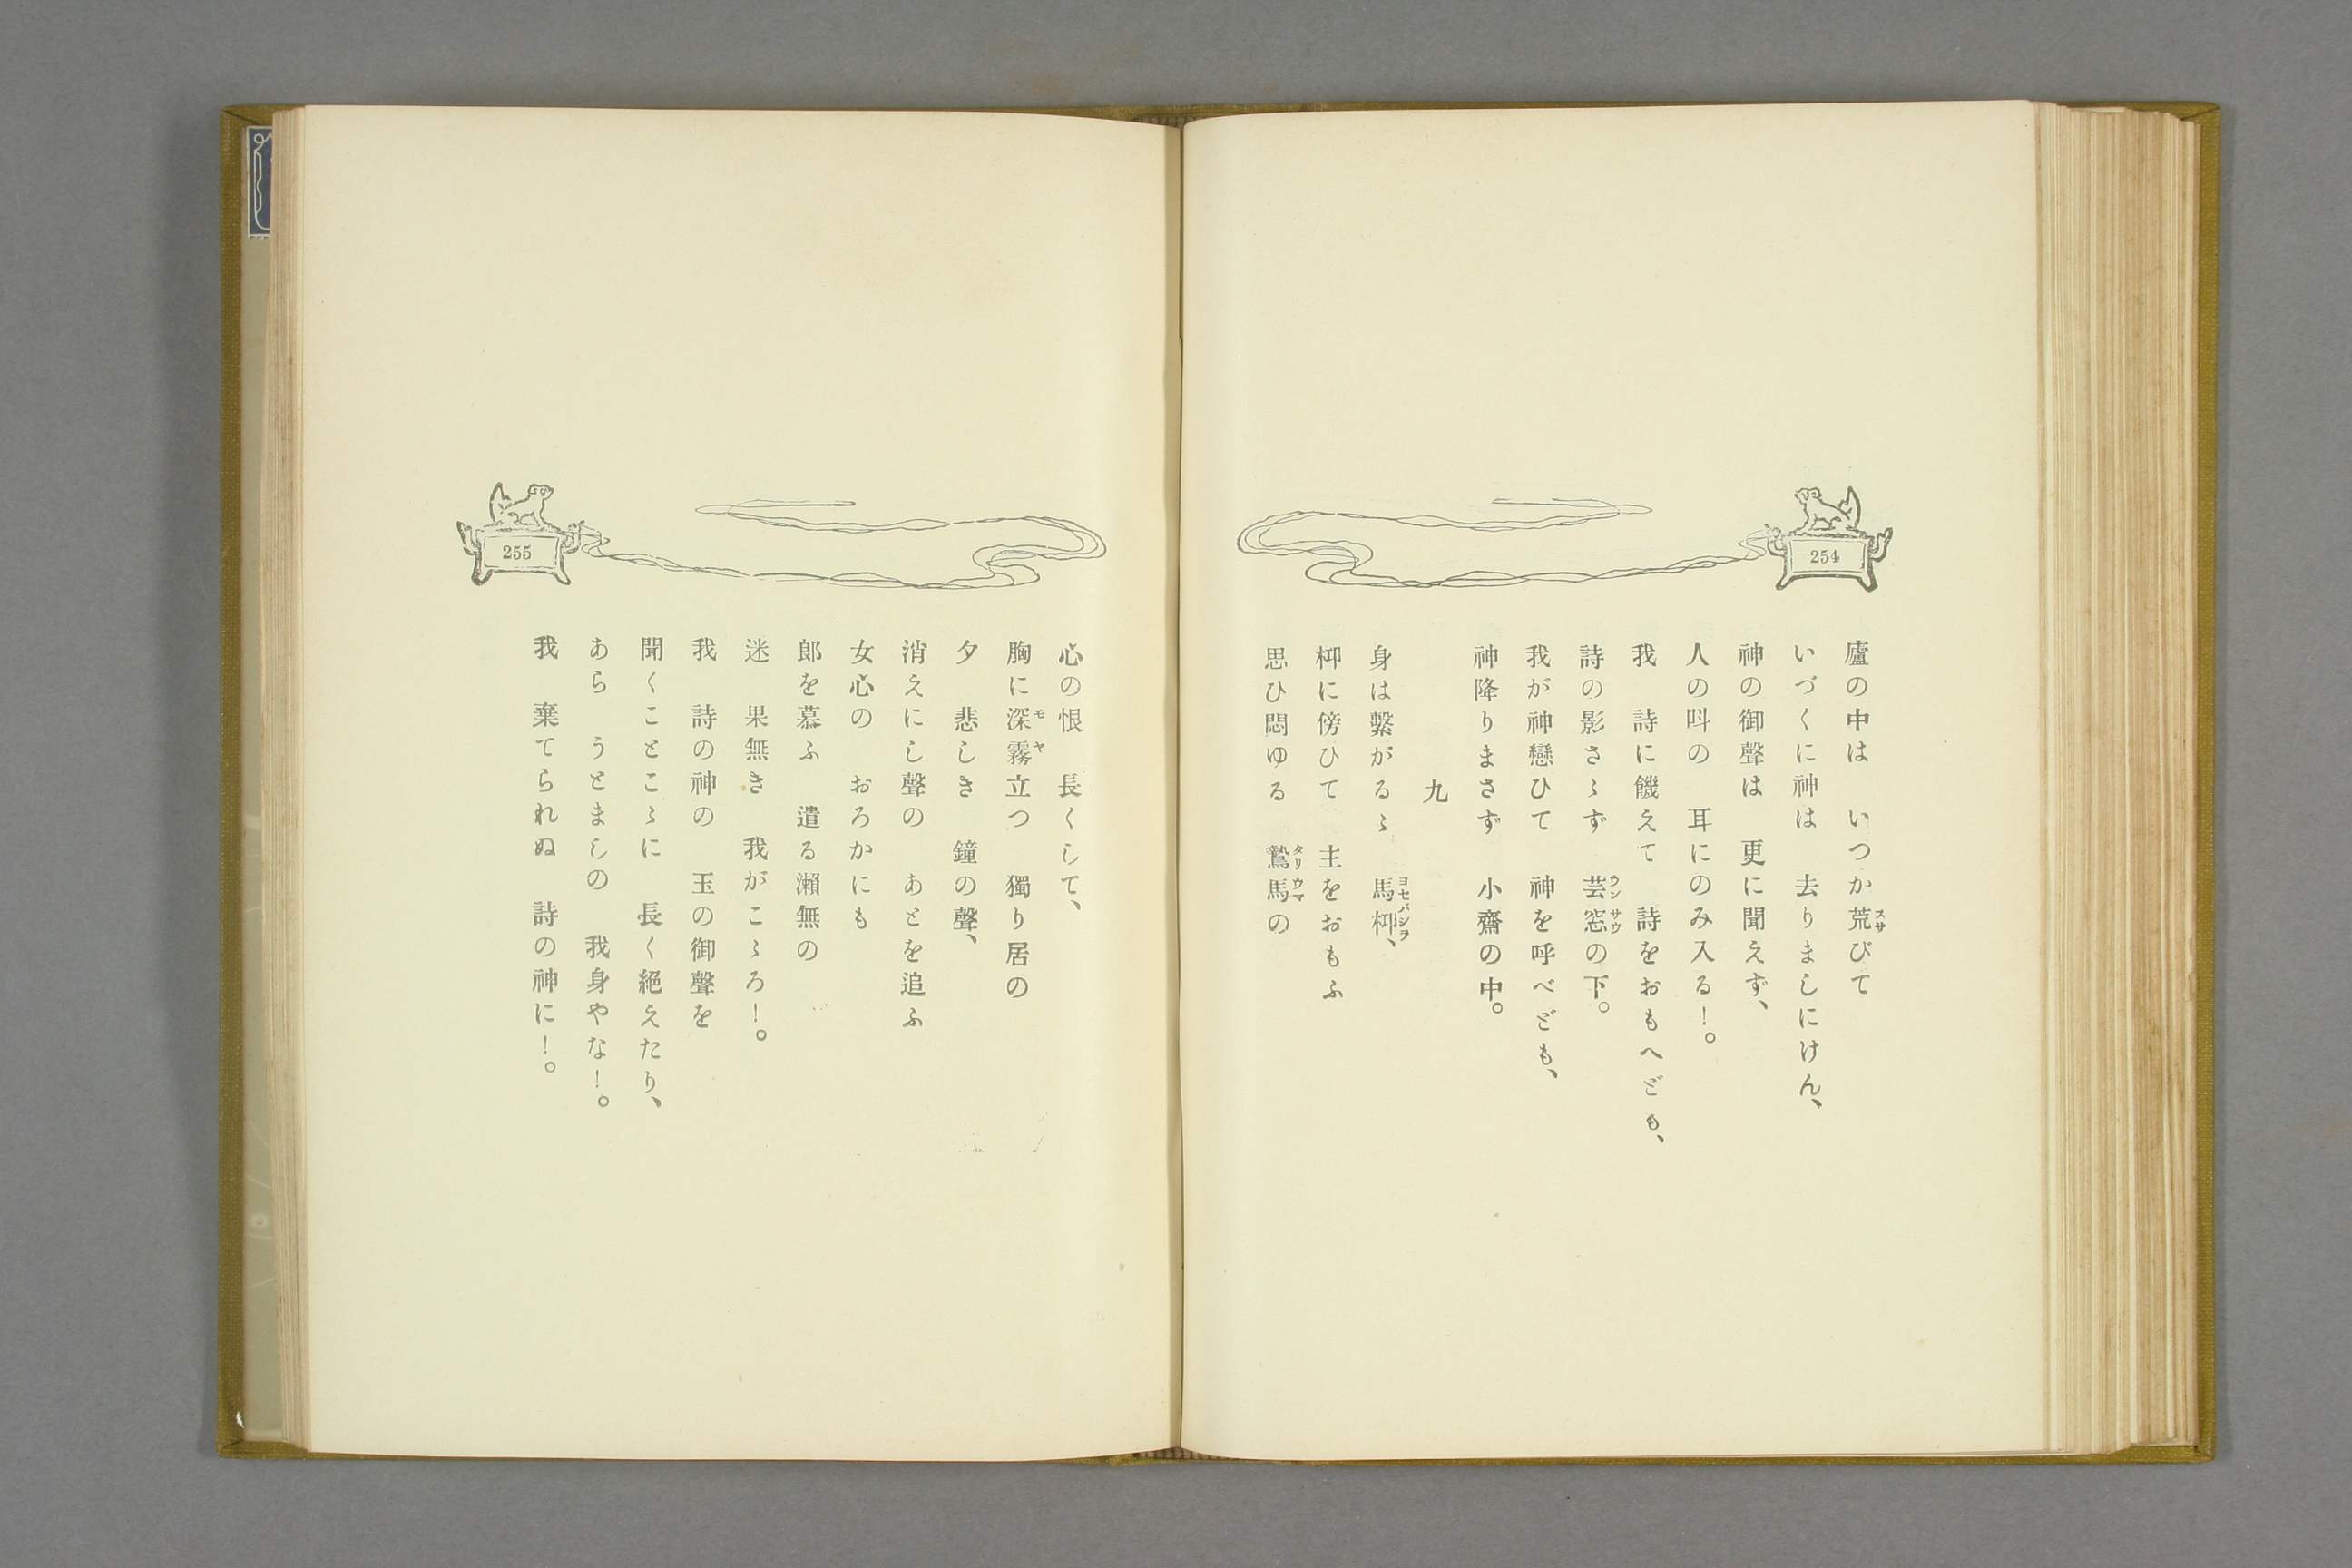 254
廬の中は　いつか荒びて
いづくに神は　去りましにけん、
神の御聲は　更に聞えず、
人の呌の　耳にのみ入る！。
我　詩に饑えて　詩をおもへども、
詩の影さゝず　芸窓の下。
我が神戀ひて　神を呼べども、
神降りまさず　小齋の中。
九
身は繋がるゝ　馬枊、
枊に傍ひて　主をおもふ
思ひ悶ゆる　鷙馬の
255
心の恨　長くして、
胸に深霧立つ　獨り居の
夕　悲しき　鐘の聲、
消えにし聲の　あとを追ふ
女心の　おろかにも
郎を慕ふ　遣る瀬無の
迷　果無き　我がこゝろ！。
我　詩の神の　玉の御聲を
聞くことこゝに　長く絕えたり、
あら　うとましの　我身やな！。
我　棄てられぬ　詩の神に！。